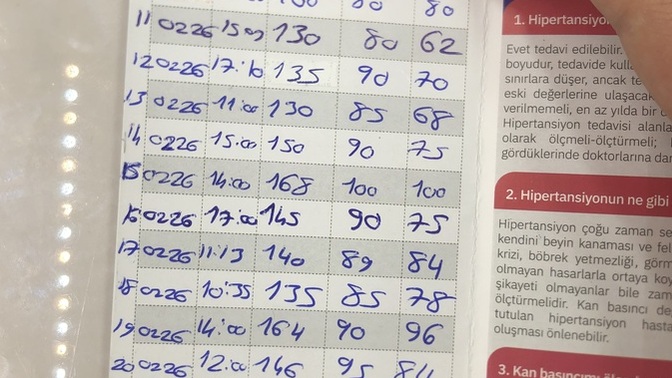 80 80
11 0226 15 00 130 80 62
12 0226 17:10 135 90 70
13 0226 11:00 130 85 68
14 0226 15:00 150 90 75
15 0226 14:00 168 100 100
16 0226 17:00 145 90 75
17 0226 11:13 140 89 84
18 0226 10:35 135 85 78
19 0226 14:00 164 90 96
20 0226 12:00 146 95 84
1. Hipertansiyo
Evet tedavi edilebilir.
boyudur, tedavide kulla
sınırlara düşer, ancak te
eski değerlerine ulaşacak
verilmemeli, en az yılda bir
Hipertansiyon tedavisi alanla
olarak ölçmeli-ölçtürmeli;
gördüklerinde doktorlarına da
2. Hipertansiyonun ne gibi
Hipertansiyon çoğu zaman se
kendini beyin kanaması ve fel
krizi, böbrek yetmezliği, görm
olmayan hasarlarla ortaya koy
şikayeti olmayanlar bile zam
ölçtürmelidir. Kan basıncı de
tutulan hipertansiyon hasta
oluşması önlenebilir.
3. Kan basıncımı